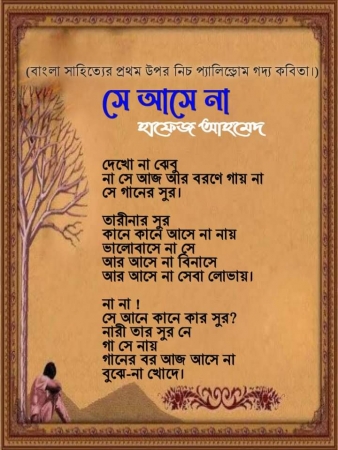 (বাংলা সাহিত্যের প্রথম উপর নিচ প্যালিন্ড্রোম গদ্য কবিতা।)
সে আসে না
হাফেজ আহমেদ
দেখো না ঝেবু
না সে আজ আর বরণে গায় না
সে গানের সুর।
তারীনার সুর
কানে কানে আসে না নায়
ভালোবাসে না সে
আর আসে না বিনাসে
আর আসে না সেবা লোভায়।
না না !
সে আনে কানে কার সুর?
নারী তার সুর নে
গা সে নায়
গানের বর আজ আসে না
বুঝে-না খোদে।